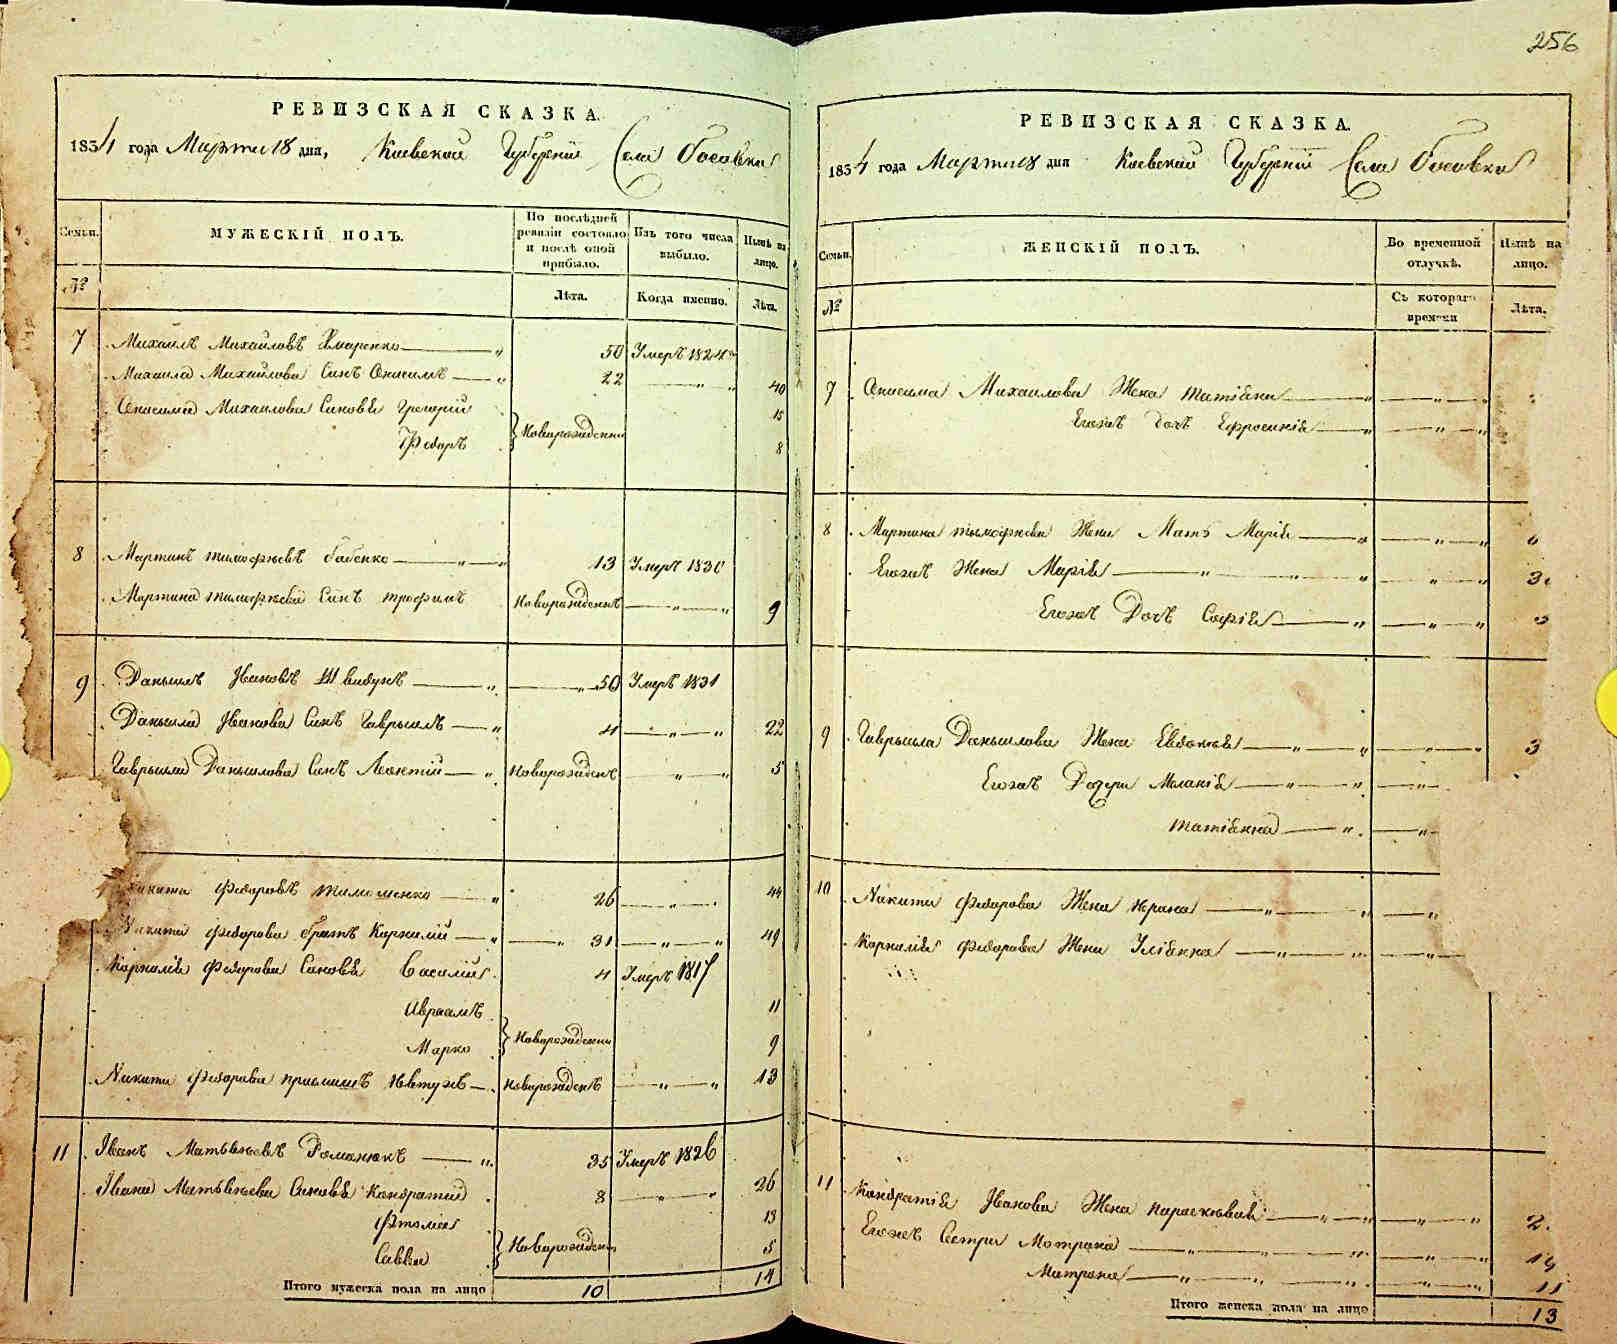 256
РЕВИЗСКАЯ СКАЗКА.
1834 года Марта 18 дня, Киевской Губернии Села Босовки
Семьи.
МУЖЕСКІЙ ПОЛЪ.
По послѣдней ревизіи состояло и послѣ оной прибыло.
Изъ того числа выбыло.
Нынѣ на лицо.
№
Лѣта.
Когда именно.
Лѣта.
7 Михаилъ Михайловъ Хмаренко 50 Умеръ 1824
Михаила Михайлова Синъ Онисимъ 22 40
Онисима Михаилова Синовья Григорій 15
Федоръ Новорожденни 8
8 Мартинъ Тимофѣевъ Бабенко 13 Умеръ 1830
Мартина Тимофѣева Синъ Трофимъ Новорожденъ 9
9 Данылъ Ивановъ Швидунъ 50 Умеръ 1831
Даныла Иванова Синъ Гаврылъ 4 22
Гаврыла Данылова Синъ Леонтій Новорожденъ 5
Никита Федоровъ Тимошенко 26 44
Никити Федорова братъ Корнилій 31 49
Корнилія Федорова Синовья Василій 4 Умеръ 1817
Авраамъ 11
Марко Новорожденни 9
Никити Федорова приомишъ Евтухъ Новорожденъ 13
11 Іванъ Матвѣевъ Романюкъ 35 Умеръ 1826
Івана Матвѣева Синовья Кондратій 8 26
Фтома 13
Савва Новорожденни 5
Итого мужеска пола на лицо 10 14
РЕВИЗСКАЯ СКАЗКА.
1834 года Марта 18 дня Киевской Губернии Села Босовки
Семьи.
ЖЕНСКІЙ ПОЛЪ.
Во временной отлучкѣ.
Нынѣ на лицо.
№
Съ котораго времени
Лѣта.
7 Онисима Михаилова Жена Татіана
Егожъ дочъ Ефросинія
8 Мартина Тимофѣева Жени Мать Марія
Егожъ Жена Марія 3
Егожъ Дочъ Софія
9 Гаврыла Данылова Жена Евдокія 3
Егожъ Дочери Маланія
Татіанна
10 Никити Федорова Жена Ирина
Корнилія Федорова Жена Уліанна
11 Кондратія Іванова Жена Параскевія 2
Егожъ Сестри Мотрона 14
Матрона 11
Итого женска пола на лицо 13